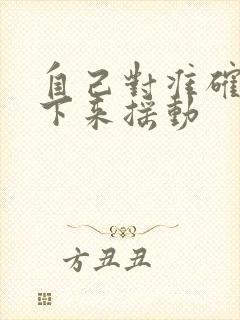 自己對准確
下來搖動
方丑丑